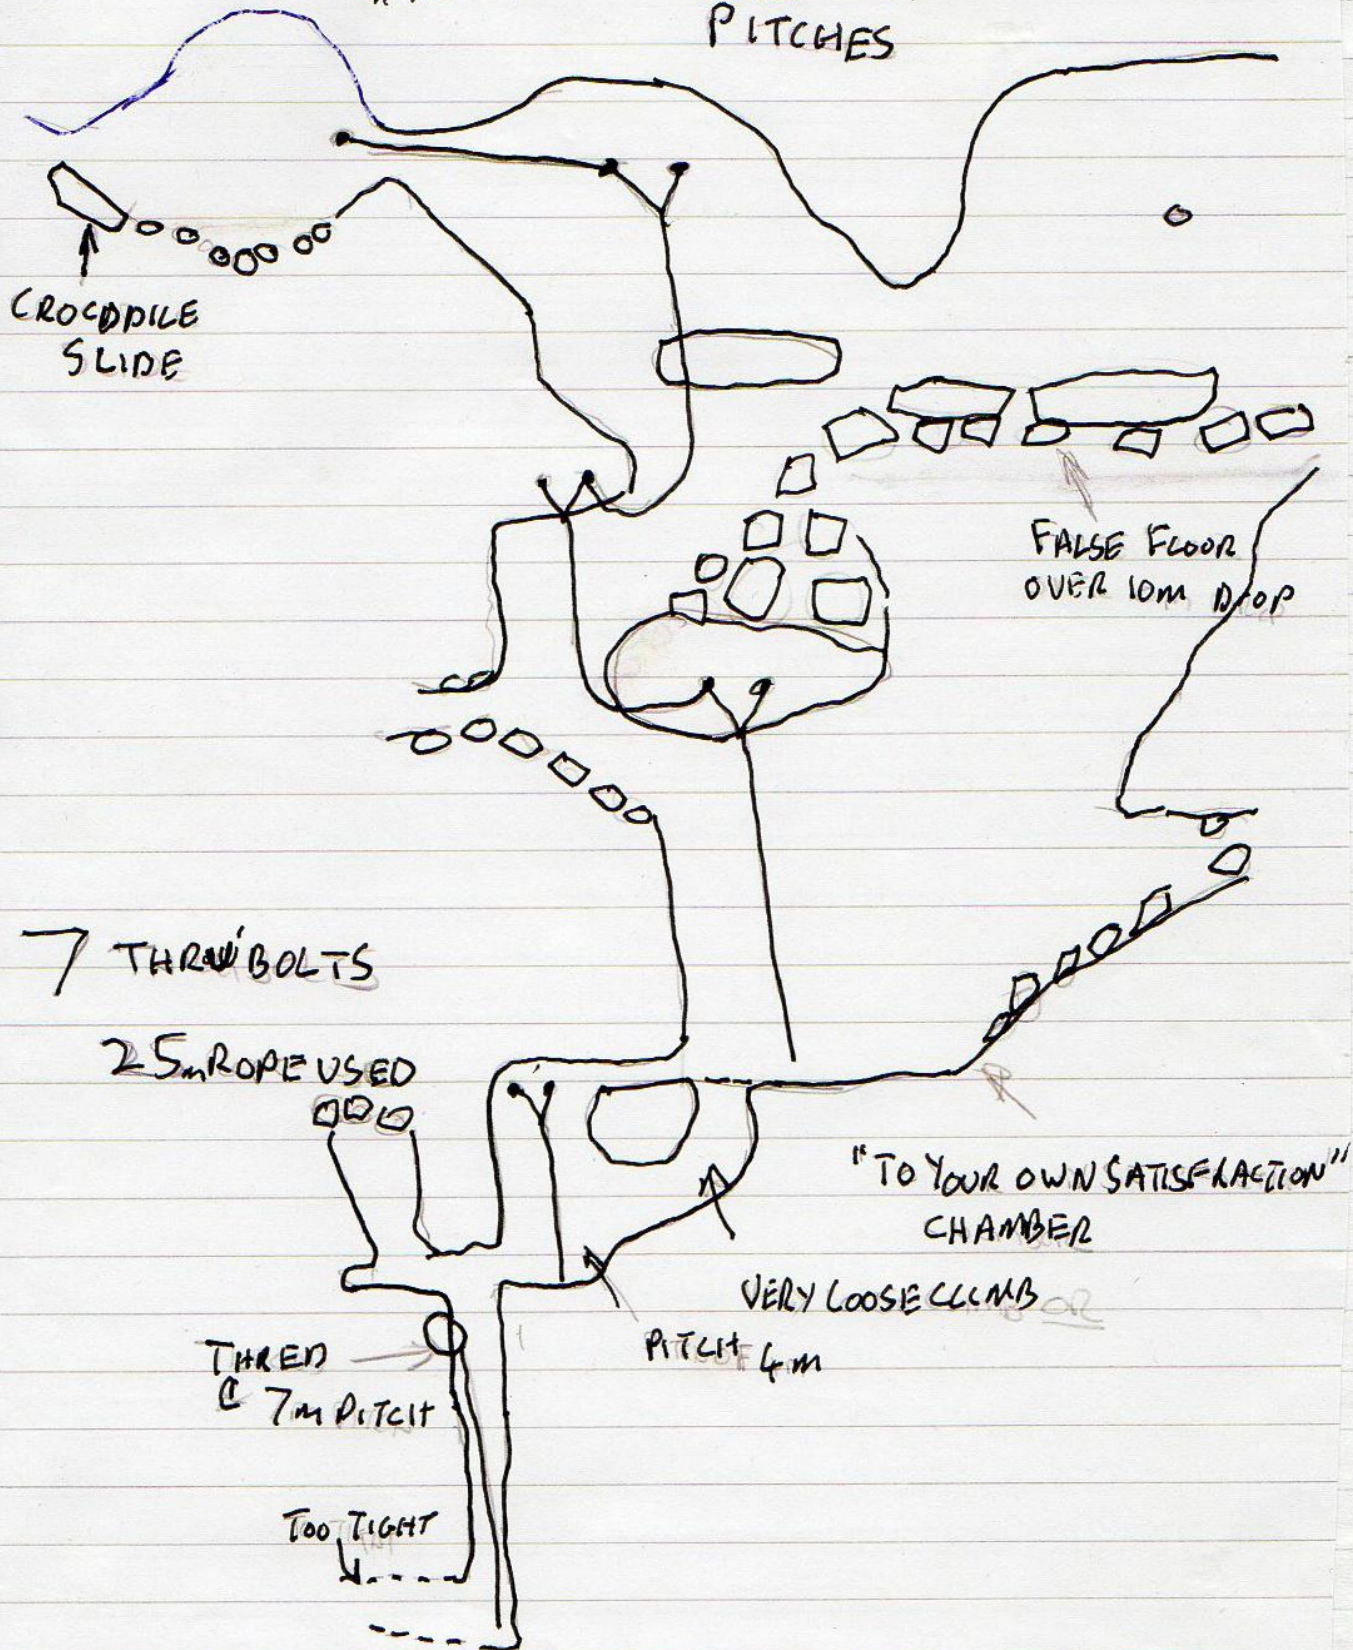 PITCHES
CROCODILE
SLIDE
FALSE FLOOR
OVER 10m DROP
7 THRU'BOLTS
25m ROPE USED
"TO YOUR OWN SATISFRACTION"
CHAMBER
VERY LOOSE CLIMB
PITCH 4m
THRED
C 7m PITCH
TOO TIGHT